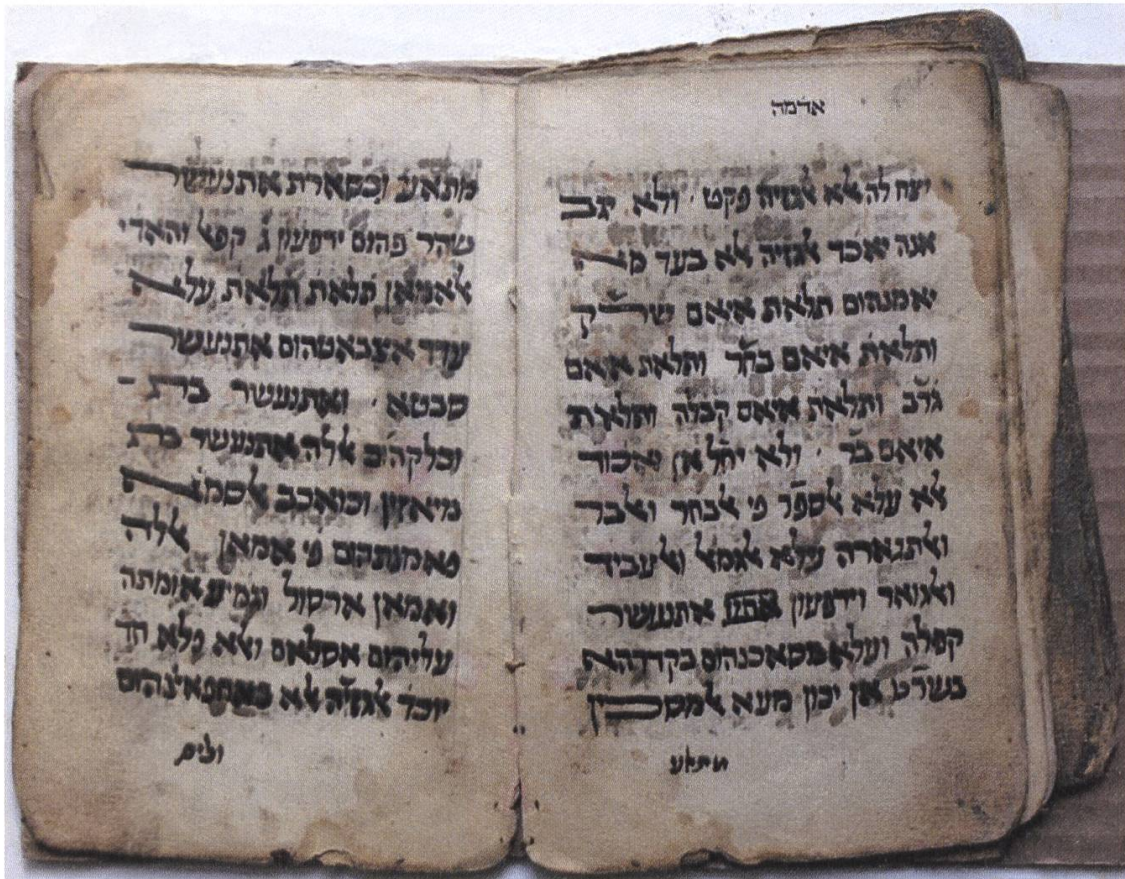 אדמה
יצח לה אלא אלגזיה פקט ׳ ולא יגב
אנה יאכד אלגזיה אלא בעד מא
יאמנהום תלאת איאם שרק
ותלאת איאם בחר ותלאת איאם
גרב ותלאת איאם קבלה ותלאת
איאם בר ׳ ולא יחל אן יאכוד
אלא עלא אלספר פי אלבחר ואלבר
ואלתגארה עלא אלגמאל ואלעביד
ואלגואר וידפעון אתנעשר
קפלה ועלא מסאכנהום בקדרהא
בשרט אן יכון מעא אלמסכין
מתאע
מתאע וכסארת אתנעשר
שהר פהום ידפעון ג קפל והאדי
אלאמאן תלאת תלאת עלא
עדד אצבאטהום אתנעשר
סבטא ׳ ואתנעשר ברג
וכלקהם אללה אתנעשר ברג
מיאזין וכואכב אלסמא
פאמנתהום פי אמאן אללה
ואמאן ארסול וגמיע אומתה
עליהום אסלאם ולא פלא חד
יוכד אלגזיה אלא
ולים